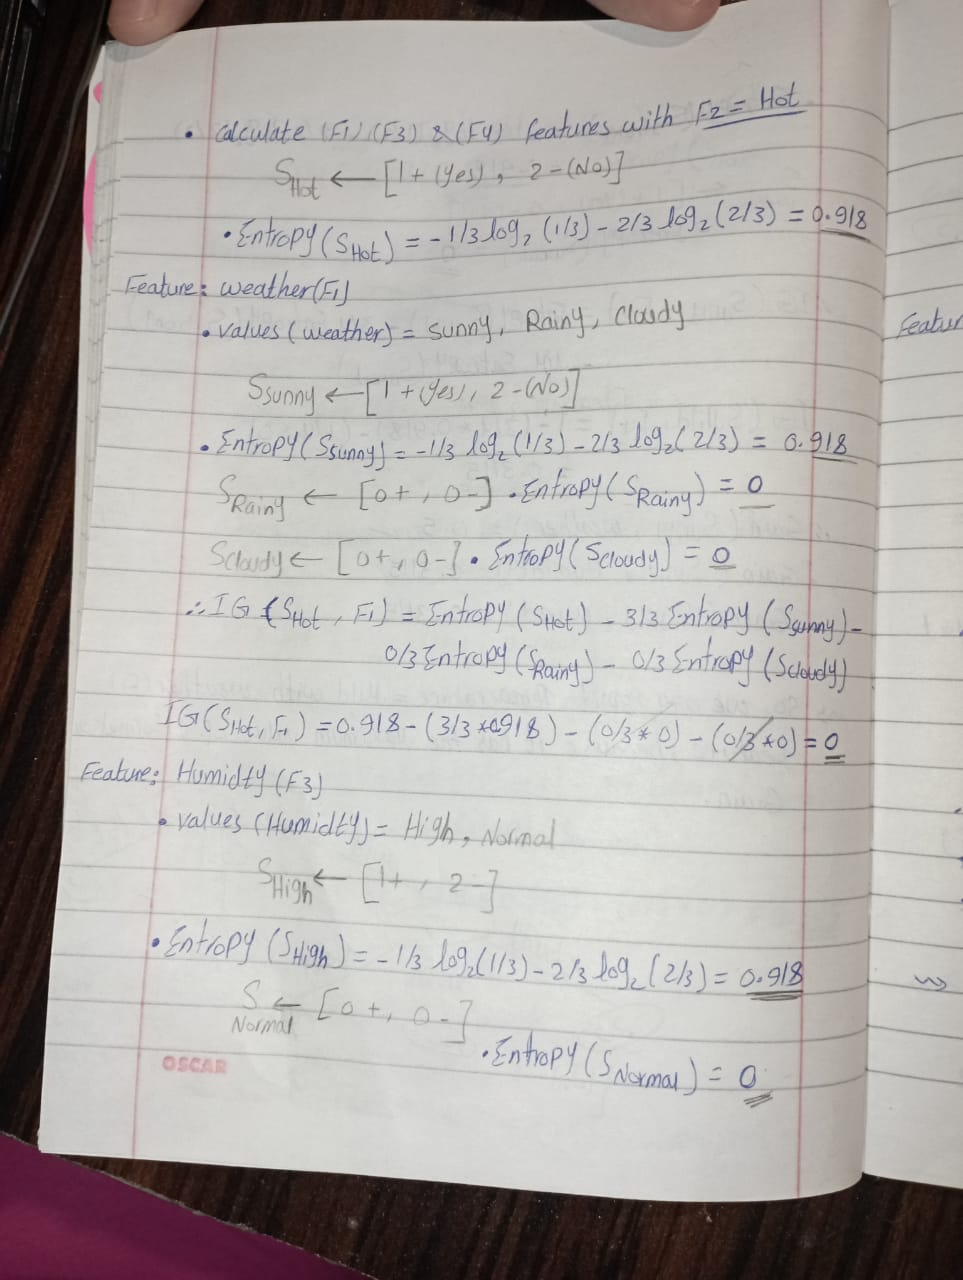 • Calculate (F1), (F3) & (F4) features with F2 = Hot
SHot ← [1+(Yes), 2-(No)]
• Entropy (SHot) = -1/3 log₂ (1/3) - 2/3 log₂ (2/3) = 0.918
Feature: weather (F1)
• values (weather) = Sunny, Rainy, Cloudy
SSunny ← [1+(Yes), 2-(No)]
• Entropy (SSunny) = -1/3 log₂ (1/3) - 2/3 log₂ (2/3) = 0.918
SRainy ← [0+, 0-] • Entropy (SRainy) = 0
SCloudy ← [0+, 0-] • Entropy (SCloudy) = 0
∴ IG (SHot, F1) = Entropy (SHot) - 3/3 Entropy (SSunny) -
0/3 Entropy (SRainy) - 0/3 Entropy (SCloudy)
IG (SHot, F1) = 0.918 - (3/3 * 0.918) - (0/3 * 0) - (0/3 * 0) = 0
Feature: Humidty (F3)
• values (Humidty) = High, Normal
SHigh ← [1+, 2-]
• Entropy (SHigh) = -1/3 log₂ (1/3) - 2/3 log₂ (2/3) = 0.918
SNormal ← [0+, 0-]
• Entropy (SNormal) = 0
OSCAR
Featur